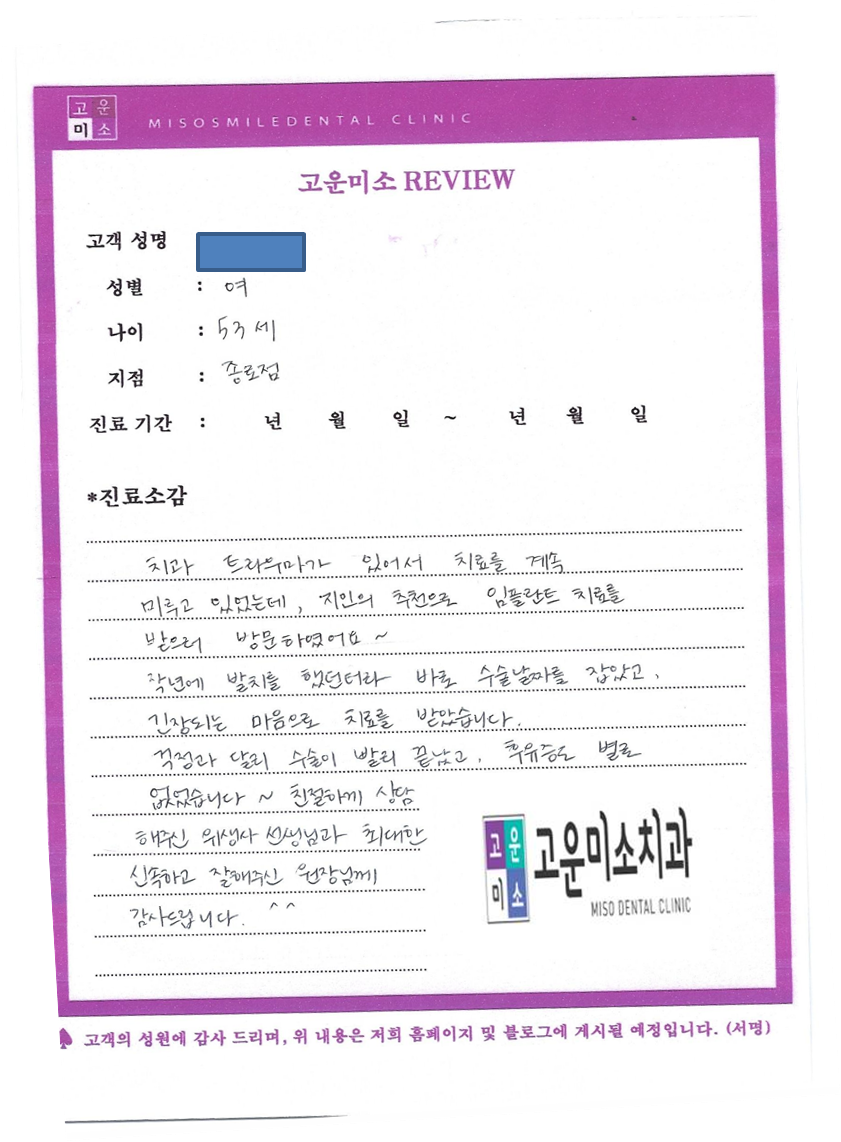 고운
미소
MISOSMILEDENTAL CLINIC
고운미소 REVIEW
고객 성명
성별 : 여
나이 : 53세
지점 : 종로점
진료 기간 : 년 월 일 ~ 년 월 일
*진료소감
치과 트라우마가 있어서 치료를 계속
미루고 있었는데, 지인의 추천으로 임플란트 치료를
받으러 방문하였어요~
작년에 발치를 했던터라 바로 수술날짜를 잡았고,
긴장되는 마음으로 치료를 받았습니다.
걱정과 달리 수술이 빨리 끝났고, 후유증도 별로
없었습니다~ 친절하게 상담
해주신 위생사 선생님과 최대한
신속하고 잘해주신 원장님께
감사드립니다. ^^
고운
미소
고운미소치과
MISO DENTAL CLINIC
고객의 성원에 감사 드리며, 위 내용은 저희 홈페이지 및 블로그에 게시될 예정입니다. (서명)